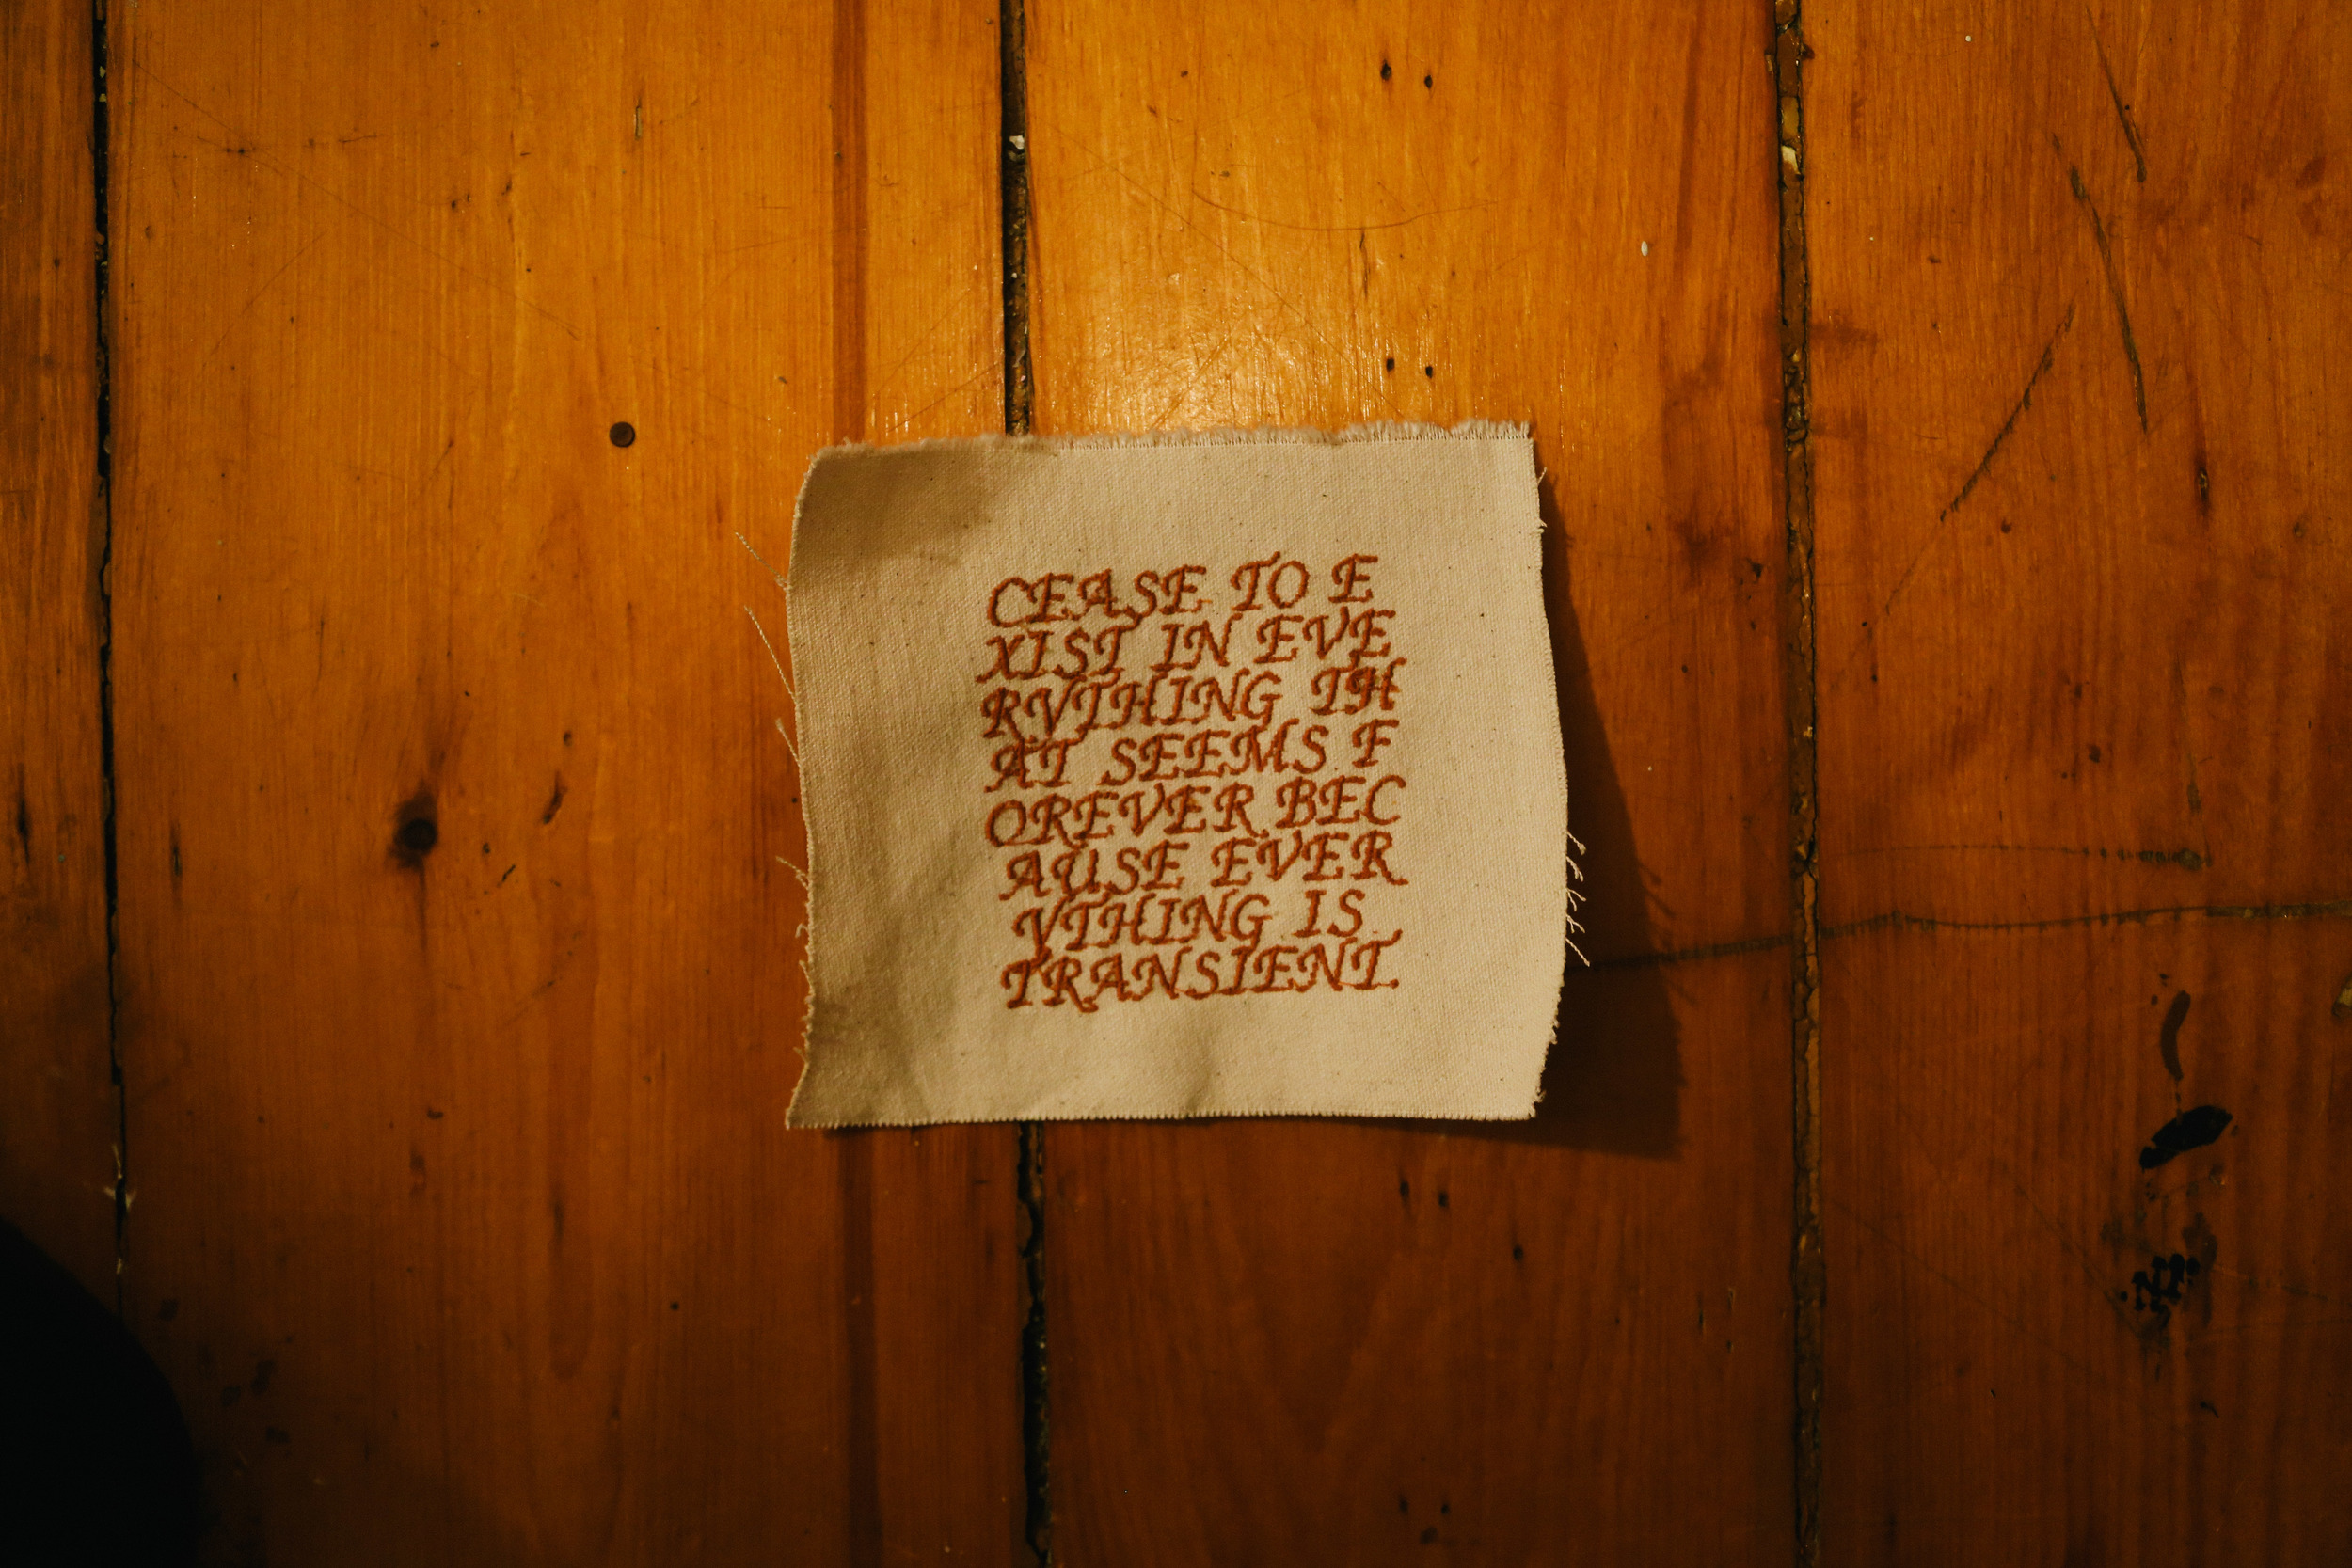 CEASE TO E
XIST IN EVE
RVTHING TH
AT SEEMS F
OREVER BEC
AUSE EVER
VTHING IS
TRANSIENT.